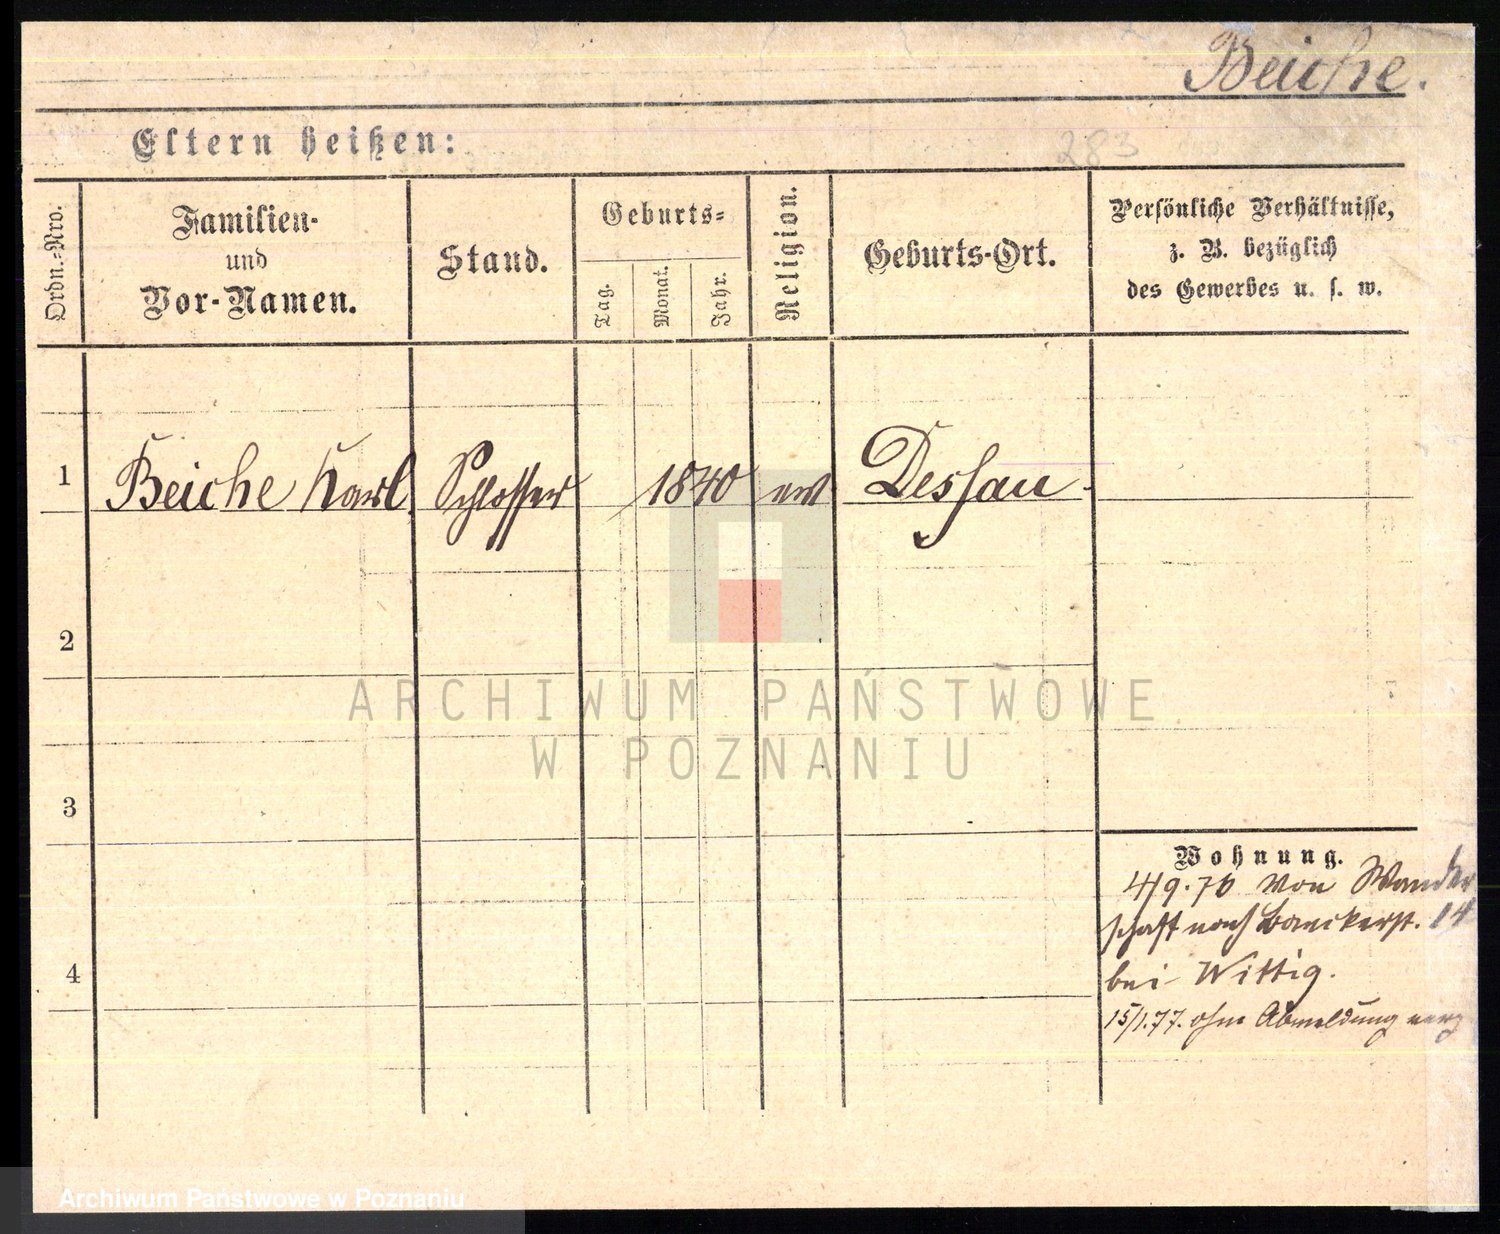 Beiche.
Eltern heißen:
283
Ordn.-Nro.
Familien-
und
Vor-Namen.
Stand.
Geburts-
Tag.
Monat.
Jahr.
Religion.
Geburts-Ort.
Persönliche Verhältnisse,
z. B. bezüglich
des Gewerbes u. s. w.
1 Beiche Karl Schlosser 1840 ev Dessau.
2
3
4
ARCHIWUM PAŃSTWOWE
W POZNANIU
Wohnung.
4/9.76 von Wander
schaft nach Baeckerst. 14
bei Wittig.
15/1.77. ohne Abmeldung verz
Archiwum Państwowe w Poznaniu